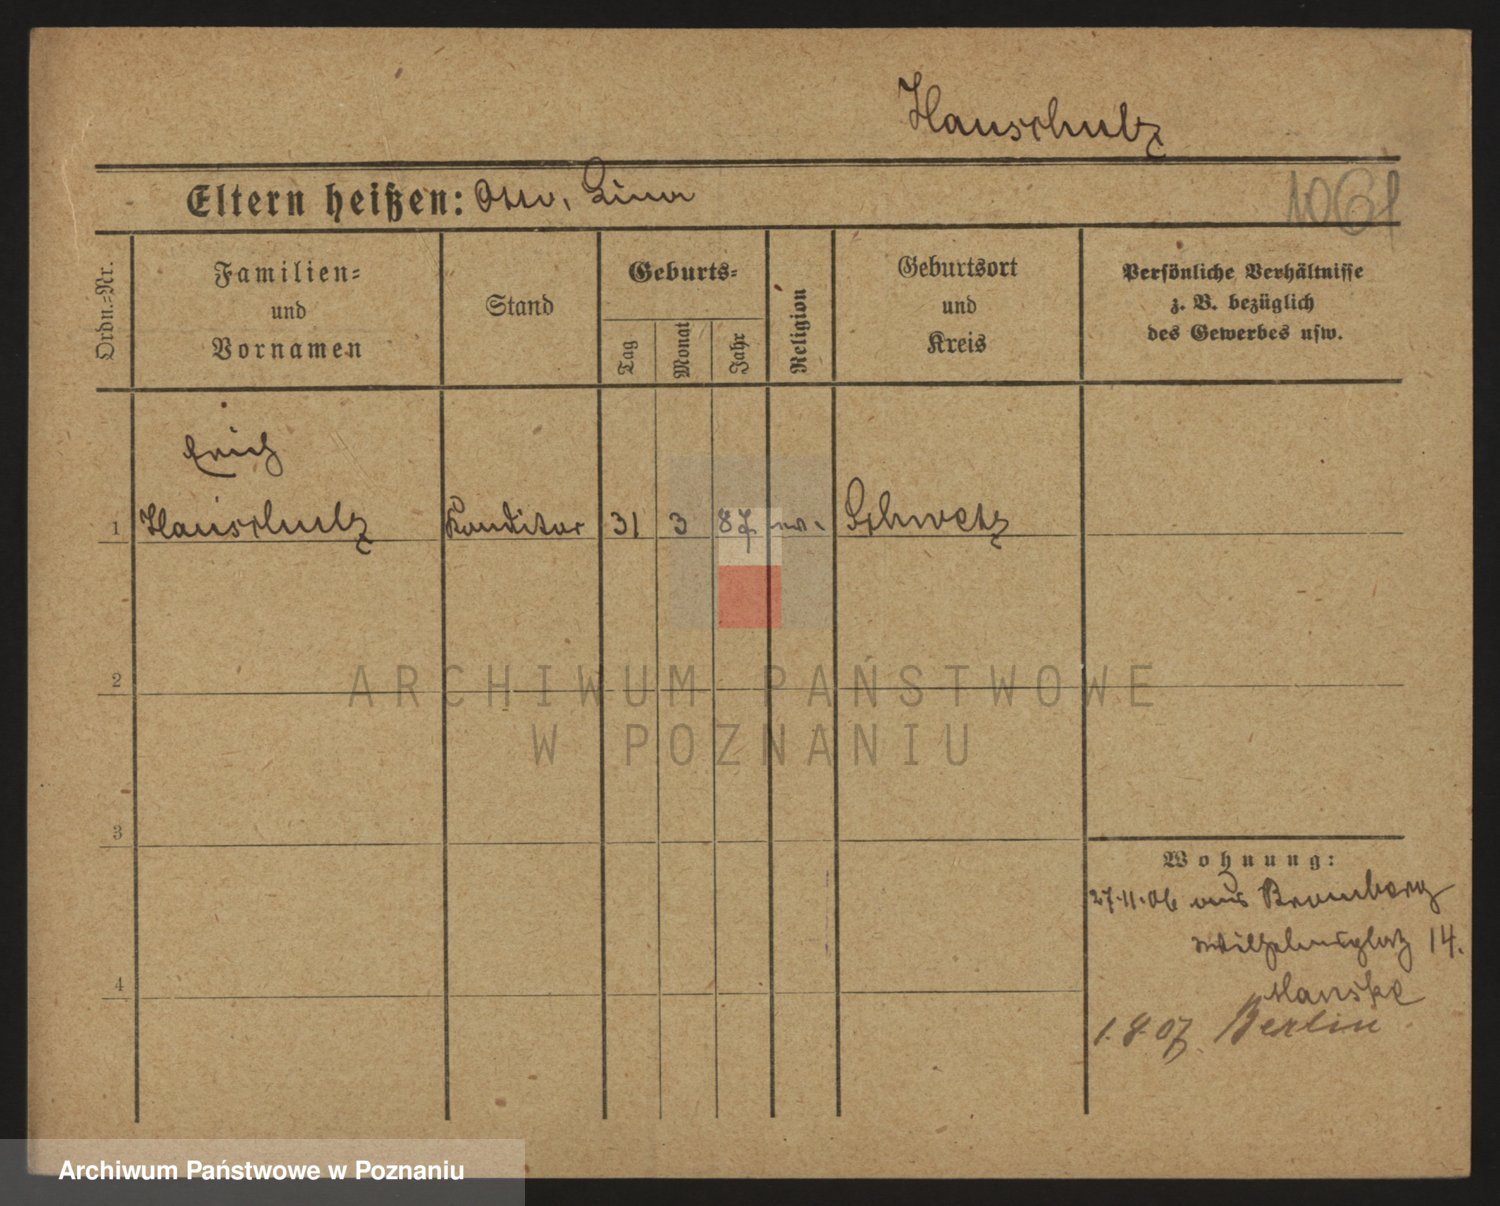 Hauschulz
Eltern heißen: Otto, Lina
1061
Ordn.=Nr.
Familien=
und
Vornamen
Stand
Geburts=
Tag
Monat
Jahr
Religion
Geburtsort
und
Kreis
Persönliche Verhältnisse
z. B. bezüglich
des Gewerbes usw.
Erich
1 Hauschulz Konditor 31 3 87 ev. Schwetz
2
3
4
Wohnung:
27.11.06 aus Bromberg
Wilhelmsplatz 14.
Manske
1.8.07. Berlin.
ARCHIWUM PAŃSTWOWE
W POZNANIU
Archiwum Państwowe w Poznaniu